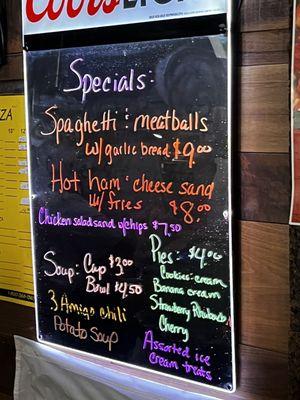 Coors
Specials:
Spaghetti : meatballs
w/ garlic bread $9.00
Hot ham : cheese sand
w/ fries $8.00
Chicken salad sand w/chips $7.50
Soup: Cup $3.00
Bowl $4.50
3 Amigo chili
Potato Soup
Pies: $4.00
Cookies: cream
Banana cream
Strawberry Rhubarb
Cherry
Assorted ice
cream treats